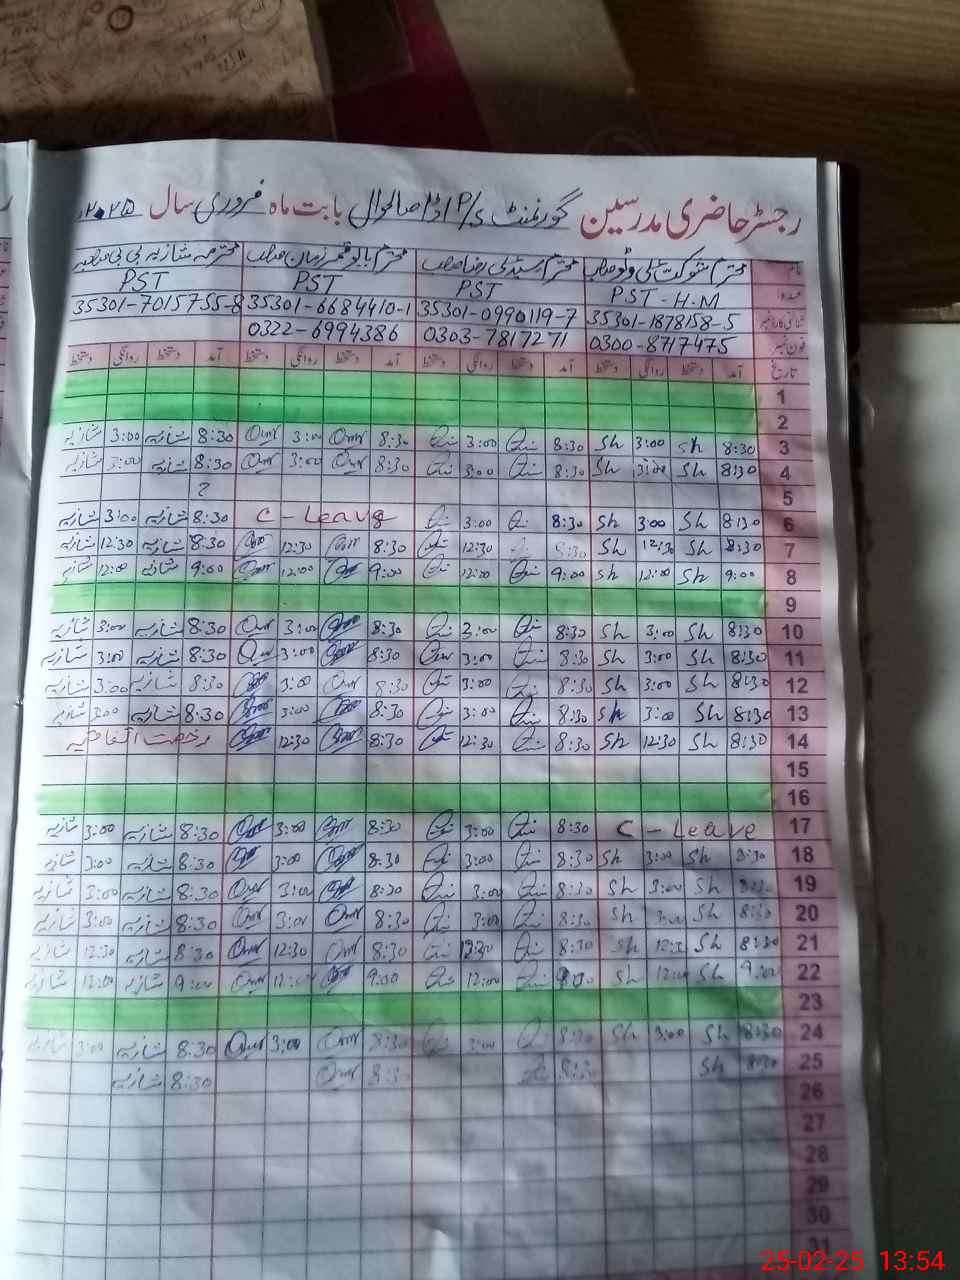 رجسٹر حاضری مدرسین گورنمنٹ P/S اڈا صالحوال بابت ماہ فروری سال ۲۰۲۵
نام محترم شوکت علی وٹو صاحب محترم سید علی رضا صاحب محترم بابو قمر زمان صاحب محترمہ شازیہ بی بی صاحبہ
عہدہ PST-H.M PST PST PST
شناختی کارڈ نمبر 35301-1878158-5 35301-0990119-7 35301-6684410-1 35301-7015755-8
فون نمبر 0300-8717475 0303-7817271 0322-6994386
تاریخ آمد دستخط روانگی دستخط آمد دستخط روانگی دستخط آمد دستخط روانگی دستخط آمد دستخط روانگی دستخط
1
2
3 8:30 Sh 3:00 Sh 8:30 3:00 8:30 3:00 8:30 شازیہ 3:00 شازیہ
4 8:30 Sh 3:00 Sh 8:30 3:00 8:30 3:00 8:30 شازیہ 3:00 شازیہ
5 ?
6 8:30 Sh 3:00 Sh 8:30 3:00 C-Leave 8:30 شازیہ 3:00 شازیہ
7 8:30 Sh 12:30 Sh 8:30 12:30 8:30 12:30 8:30 شازیہ 12:30 شازیہ
8 9:00 Sh 12:00 Sh 9:00 12:00 9:00 12:00 9:00 شازیہ 12:00 شازیہ
9
10 8:30 Sh 3:00 Sh 8:30 3:00 8:30 3:00 8:30 شازیہ 3:00 شازیہ
11 8:30 Sh 3:00 Sh 8:30 3:00 8:30 3:00 8:30 شازیہ 3:00 شازیہ
12 8:30 Sh 3:00 Sh 8:30 3:00 8:30 3:00 8:30 شازیہ 3:00 شازیہ
13 8:30 Sh 3:00 Sh 8:30 3:00 8:30 3:00 8:30 شازیہ 3:00 شازیہ
14 8:30 Sh 12:30 Sh 8:30 12:30 8:30 12:30 رخصت اتفاقیہ
15
16
17 C-Leave 8:30 3:00 8:30 3:00 8:30 شازیہ 3:00 شازیہ
18 8:30 Sh 3:00 Sh 8:30 3:00 8:30 3:00 8:30 شازیہ 3:00 شازیہ
19 8:30 Sh 3:00 Sh 8:30 3:00 8:30 3:00 8:30 شازیہ 3:00 شازیہ
20 8:30 Sh 3:00 Sh 8:30 3:00 8:30 3:00 8:30 شازیہ 3:00 شازیہ
21 8:30 Sh Sh 8:30 12:30 8:30 12:30 8:30 شازیہ 12:30 شازیہ
22 9:00 Sh 12:00 Sh 9:00 12:00 9:00 12:00 9:00 شازیہ 12:00 شازیہ
23
24 8:30 Sh 3:00 Sh 8:30 3:00 8:30 3:00 8:30 شازیہ 3:00 شازیہ
25 8:30 Sh 8:30 8:30 8:30 شازیہ
26
27
28
29
30
31
25-02-25 13:54